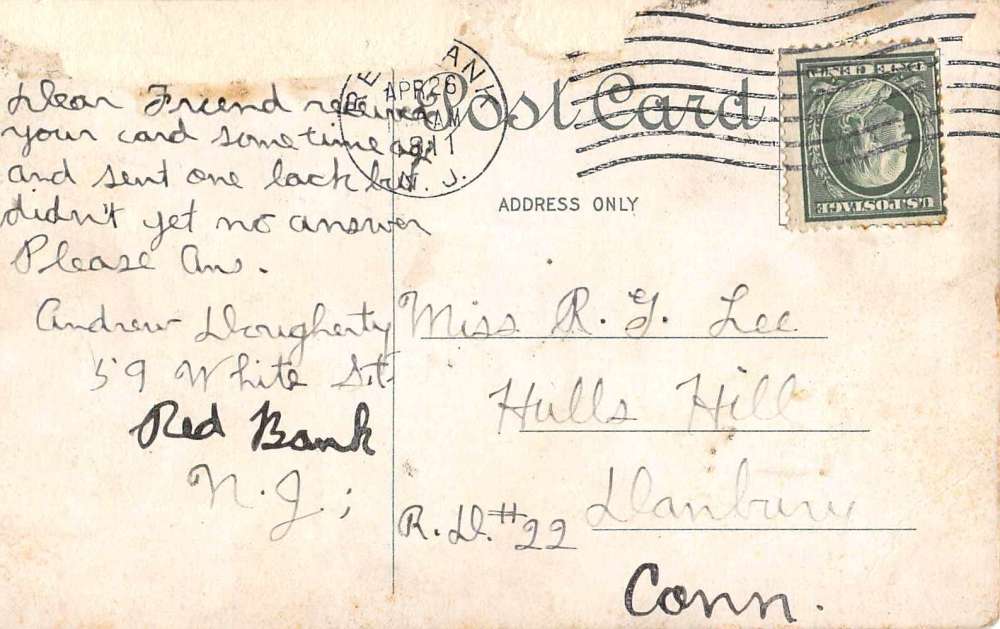 Dear Friend received
your card some time ago
and sent one back but
didn't yet no answer
Please Ans.
Andrew Dougherty
59 White St.
Red Bank
N. J.;
APR 26
AM
1911
N. J.
Post Card
ADDRESS ONLY
U.S. POSTAGE
Miss R. G. Lee
Hulls Hill
Danbury
R. D. # 22
Conn.